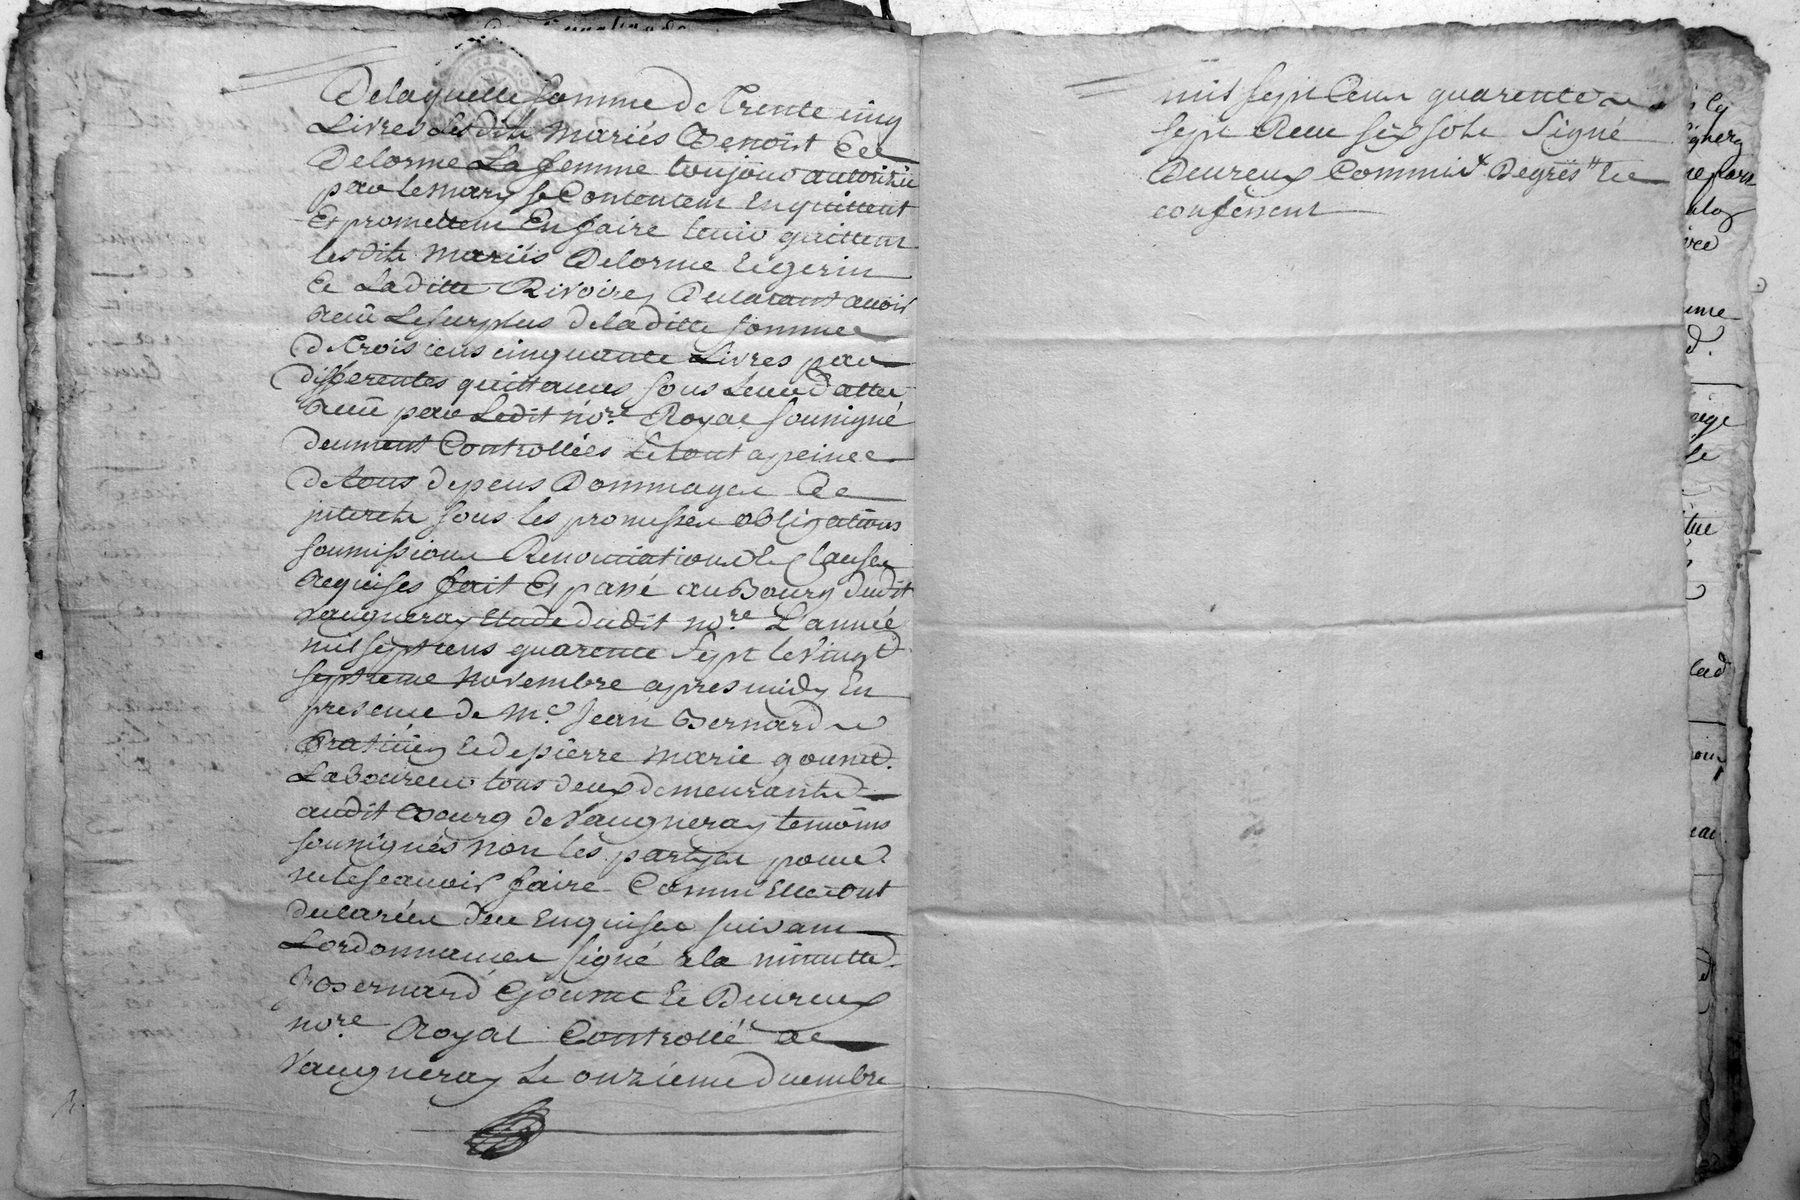 De laquelle somme de Trente cinq
Livres lesdits Mariés Benoist Et
Delorme La femme toujours autorisée
par le mary se Contentent En quittent
Et promettent En faire tenir quittem
lesdits Mariés Delorme Et gerin
Et Laditte Rivoire, Declarant avoir
Receu Le surplus de laditte somme
de trois cens cinquante Livres par
differentes quittances sous Leur datte
Receu par Ledit no.re Royal soussigné
deument Controllées Le tout a peine
de tous depens Dommages Et
interets sous les promesses obligations
soumissions Renonciations Et Clauses
Requises fait Et passé au Bourg dudit
Vaugneray Etude dudit no.re L'année
mil sept cens quarente Sept le Vingt
septieme Novembre apres midy En
presence de M.e Jean Bernard
Praticien Et de pierre Marie gounet
Laboureur tous deux demeurants
audit Bourg de Vaugneray temoins
soussignés non les parties pour
ne le scavoir faire Comm'Elles ont
declarées de ce Enquises suivant
L'ordonnance signé a la minutte
Bernard Gounet Et Deureux
no.re Royal Controllé a
Vaugneray Le onzieme decembre
mil sept Cens quarente
sept Receu six sols Signé
Deureux Commis